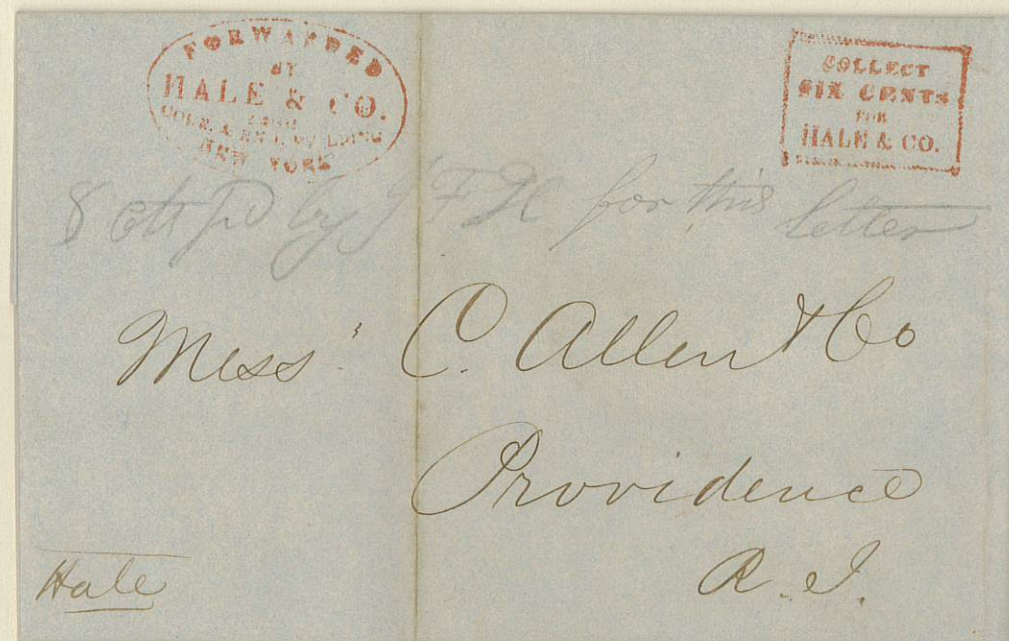 FORWARDED
BY
HALE & CO.
FROM
BUILDING
NEW YORK
COLLECT
SIX CENTS
FOR
HALE & CO.
8 cts pd by for this letter
Mess" C. Allen & Co
Providence
R. I.
Hale